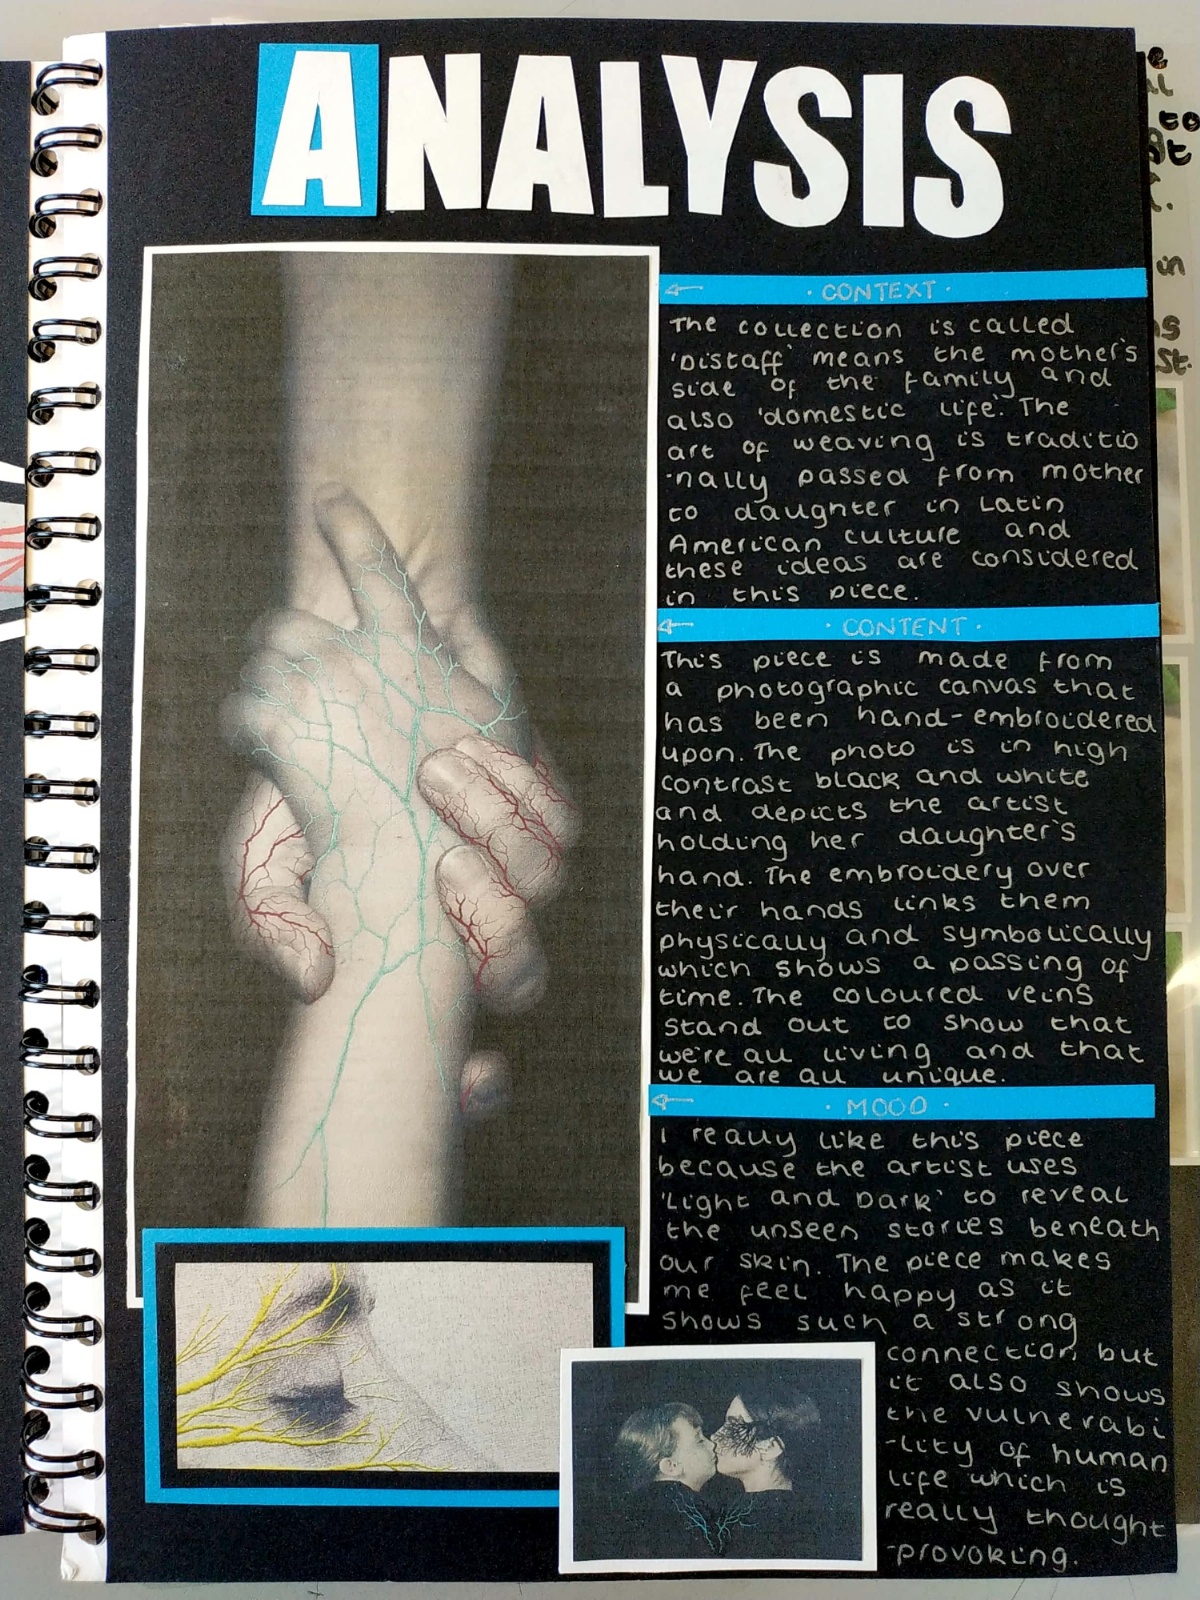 ANALYSIS
· CONTEXT ·
The collection is called
'Distaff' means the mother's
side of the family and
also 'domestic life'. The
art of weaving is traditio
-nally passed from mother
to daughter in Latin
American culture and
these ideas are considered
in this piece.
· CONTENT ·
This piece is made from
a photographic canvas that
has been hand-embroidered
upon. The photo is in high
contrast black and white
and depicts the artist
holding her daughter's
hand. The embroidery over
their hands links them
physically and symbolically
which shows a passing of
time. The coloured veins
stand out to show that
we're all living and that
we are all unique.
· MOOD ·
I really like this piece
because the artist uses
'Light and Dark' to reveal
the unseen stories beneath
our skin. The piece makes
me feel happy as it
shows such a strong
connection, but
it also shows
the vulnerabi
-lity of human
life which is
really thought
-provoking.
to
in
st.